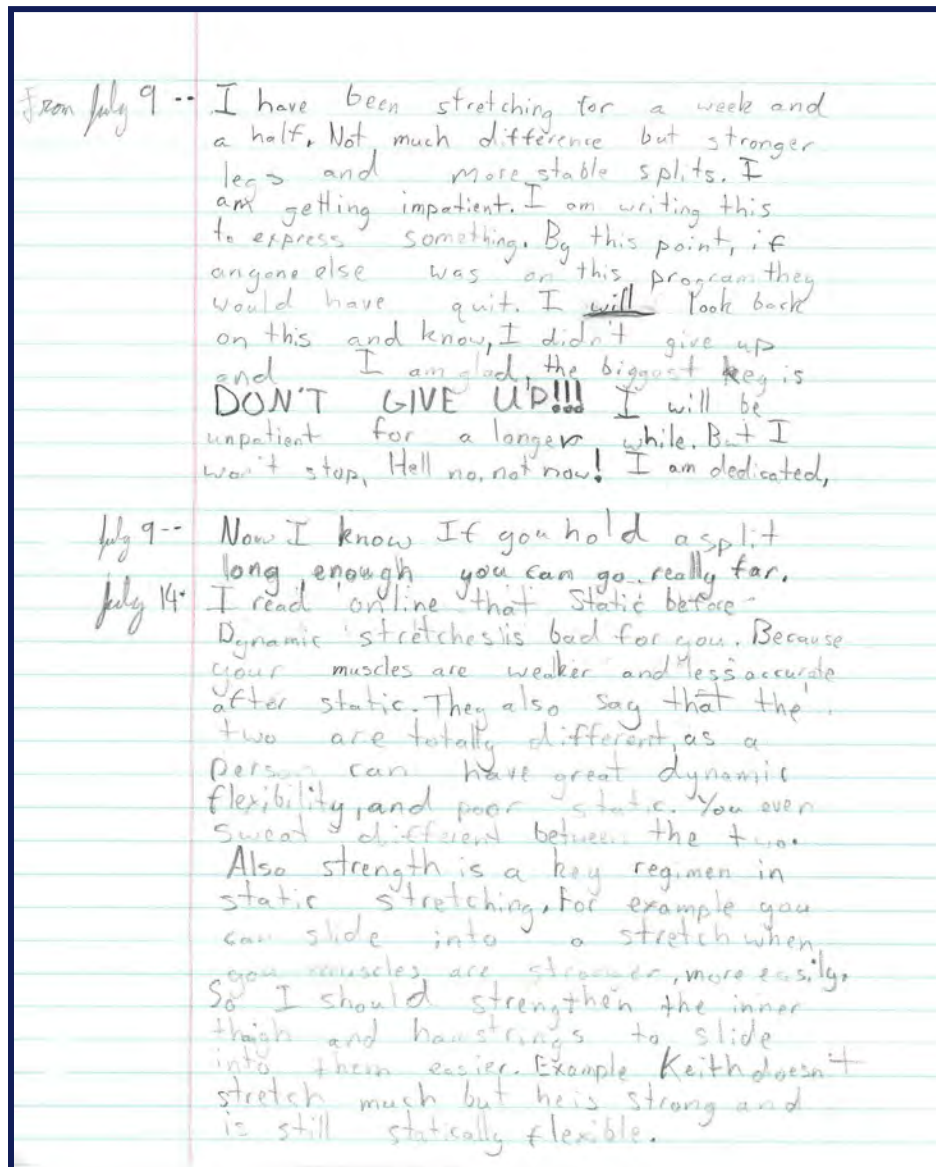 From July 9 -- I have been stretching for a week and
a half. Not much difference but stronger
legs and more stable splits. I
am getting impatient. I am writing this
to express something. By this point, if
anyone else was on this program they
would have quit. I will look back
on this and know, I didn't give up
and I am glad, the biggest key is
DON'T GIVE UP!!! I will be
unpatient for a longer while. But I
won't stop, Hell no, not now! I am dedicated,
July 9-- Now I know If you hold a split
long enough you can go really far.
July 14- I read online that Static before
Dynamic stretches is bad for you. Because
your muscles are weaker and less accurate
after static. They also say that the
two are totally different, as a
person can have great dynamic
flexibility, and poor static. You even
sweat different between the two.
Also strength is a key regimen in
static stretching, for example you
can slide into a stretch when
you muscles are stronger, more easily.
So I should strengthen the inner
thaigh and hamstrings to slide
into them easier. Example Keith doesn't
stretch much but he is strong and
is still statically flexible.